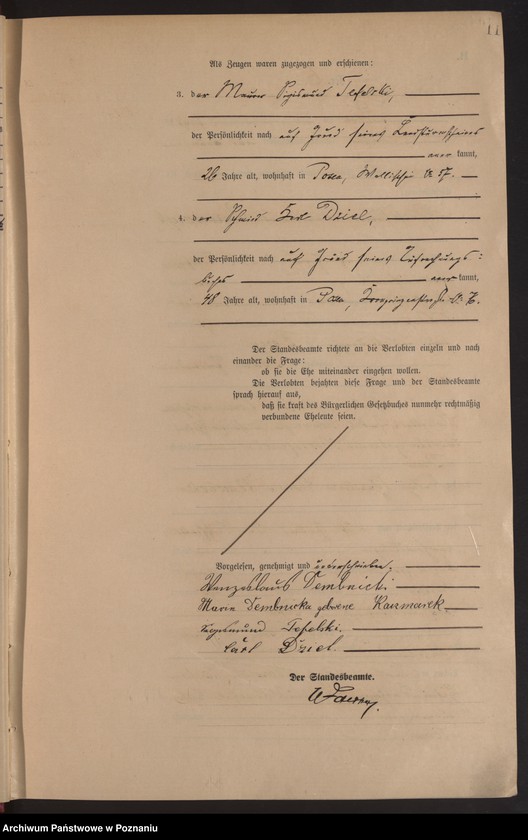 11
Als Zeugen waren zugezogen und erschienen:
3. der Maurer Sigismund Tefelski,
der Persönlichkeit nach auf Grund seines Landsturmscheines
aner kannt,
26 Jahre alt, wohnhaft in Posen, Wallischei No 57.
4. der Schmied Karl Dziel,
der Persönlichkeit nach auf Grund seines
buches anerkannt,
48 Jahre alt, wohnhaft in Posen, Kronprinzenstraße No
Der Standesbeamte richtete an die Verlobten einzeln und nach
einander die Frage:
ob sie die Ehe miteinander eingehen wollen.
Die Verlobten bejahten diese Frage und der Standesbeamte
sprach hierauf aus,
daß sie kraft des Bürgerlichen Gesetzbuches nunmehr rechtmäßig
verbundene Eheleute seien.
Vorgelesen, genehmigt und unterschrieben.
Wenzeslaus Dembnicki
Maria Dembnicka geborene Kaczmarek
Sigismund Tefelski.
Carl Dziel
Der Standesbeamte.
Archiwum Państwowe w Poznaniu